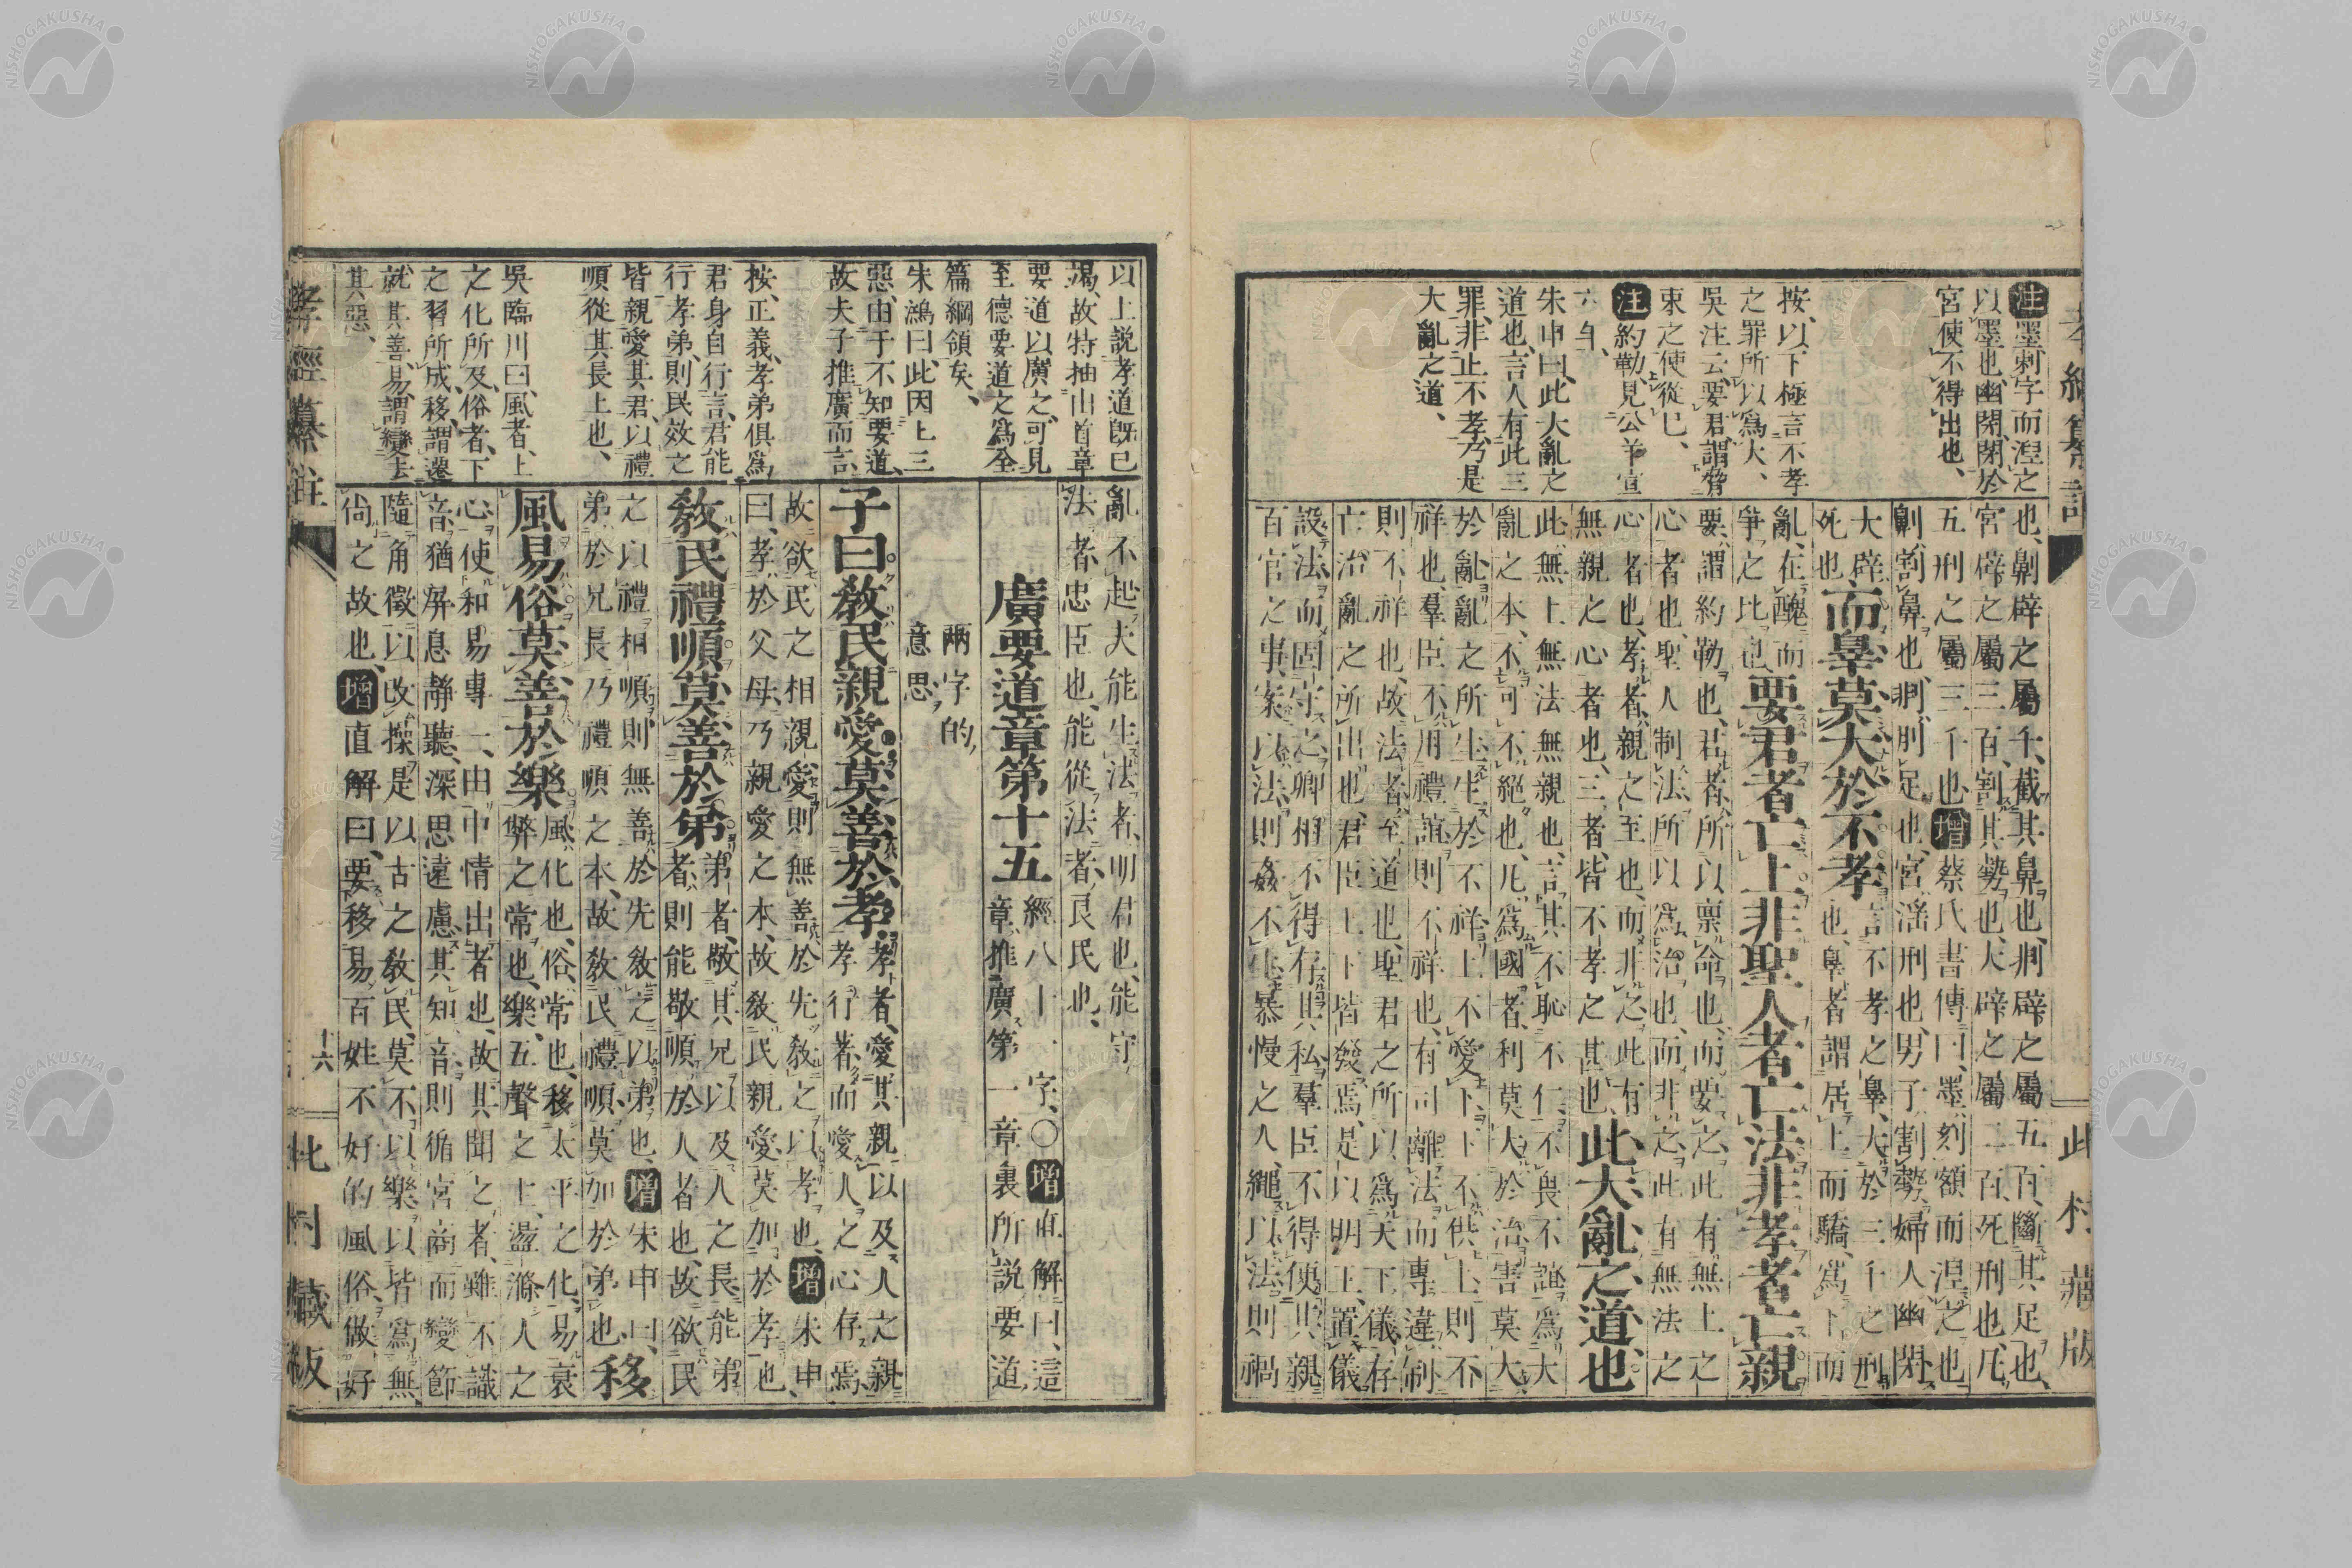 注墨刺字而湼之
以墨也幽閉閉於
宮使不得出也、
按、以下極言不孝
之罪所以爲大、
吳注云、要君、謂脅
束之使從已、
注約勒、見公羊宣
六年、
朱申曰、此大亂之
道也、言人有此三
罪、非止不孝、乃是
大亂之道、
也、劓辟之屬千、截其鼻也、剕辟之屬五百、斷其足也、
宮辟之屬三百、割其勢也、大辟之屬二百、死刑也、凡
五刑之屬三千也、增蔡氏書傳曰、墨、刻額而湼之也
劓、割鼻也、剕、刖足也、宮、淫刑也、男子割勢、婦人幽閉、
大辟、死也、而辠莫大於不孝言不孝之辠、大於三千之刑
也、辠者謂居上而驕、爲下而
亂、在醜而爭之比也要君者亡上非聖人者亡法非孝者亡親
要、謂約勒也、君者、所以稟命也、而要之、此有無上之
心者也、聖人制法、所以爲治也、而非之、此有無法之
心者也、孝者、親之至也、而非之、此有
無親之心者也、三者、皆不孝之甚也、此大亂之道也
此無上無法無親也、言其不恥不仁、不畏不誼、爲大
亂之本、不可不絕也、凡爲國者、利莫大於治、害莫大
於亂、亂之所生、生於不祥、上不愛下、下不供上、則不
祥也、羣臣不用禮誼、則不祥也、有司離法而專違制
則不祥也、故法者、至道也、聖君之所以爲天下儀、存
亡治亂之所出也、君臣上下皆發焉、是以明王置儀
設法而固守之、卿相不得存其私、羣臣不得便其親
百官之事、案以法、則姦不生、暴慢之人、繩以法、則禍
孝經集註
此村藏版
以上說孝道旣已
竭、故特抽出首章
要道以廣之、可見
至德要道之爲全
篇綱領矣、
朱鴻曰、此因上三
惡、由于不知要道、
故夫子推廣而言、
按、正義、孝弟俱爲
君身自行言、君能
行孝弟、則民效之
皆親愛其君、以禮
順從其長上也、
吳臨川曰、風者、上
之化所及、俗者、下
之習所成、移、謂遷
就其善、易、謂變去
其惡、
亂不起、夫能生法者、明君也、能守
法者、忠臣也、能從法者、良民也、
廣要道章第十五經八十一字、〇增直解曰、這
章、推廣第一章裏所說要道
兩字的
意思
子曰教民親愛莫善於孝孝者、愛其親以及人之親
孝行著、而愛人之心存焉、
故欲民之相親愛、則無善於先教之以孝也、增朱申
曰、孝於父母、乃親愛之本、故教民親愛、莫加於孝也、
教民禮順莫善於弟弟者、敬其兄以及人之長、能弟
者、則能敬順於人者也、故欲民
之以禮相順、則無善於先教之以弟也、增朱申曰、
弟於兄長、乃禮順之本、故教民禮順、莫加於弟也、移
風易俗莫善於樂風、化也、俗、常也、移、太平之化、易衰
弊之常也、樂、五聲之主、盪滌人之
心、使和易專一、由中情出者也、故其聞之者、雖不識
音、猶屏息靜聽、深思遠慮、其知音、則循宮商而變節
隨角徵以改操、是以古之教民、莫不以樂、以皆爲無
尙之故也、增直解曰、要移易百姓不好的風俗、做好
孝經集註
十六
此村藏板